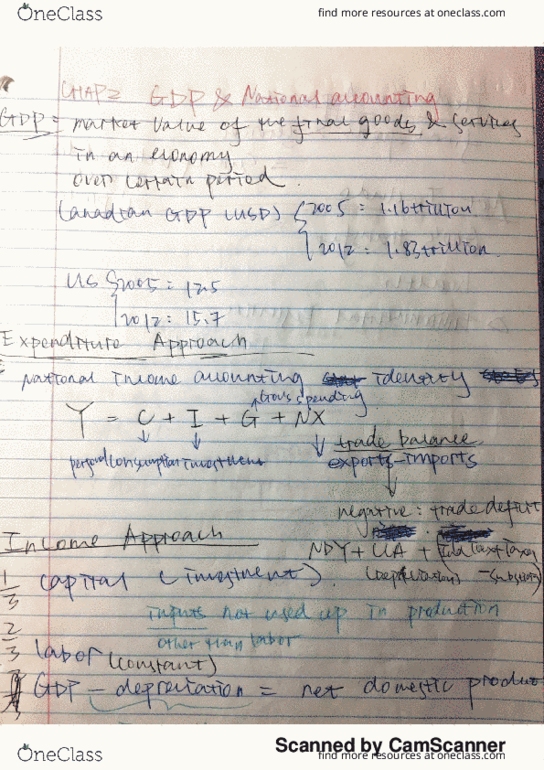 OneClass
find more resources at oneclass.com
CHAP2 GDP & National accounting
GDP = market value of the final goods & services
in an economy
over certain period.
Canadian GDP (USD) { 2005 : 1.16 trillion
2012 : 1.83 trillion.
US { 2005 : 12.5
2012 : 15.7
Expenditure Approach
National Income accounting identity
Gov's spending
Y = C + I + G + NX
trade balance
personal consumption investment exports - imports
negative : trade deficit
Income Approach
NDY + CCA +
1/3 capital (investment). (depreciation) - subsidy)
inputs not used up in production
other than labor
2/3 labor (constant)
GDP - depreciation = net domestic product
Scanned by CamScanner
OneClass
find more resources at oneclass.com